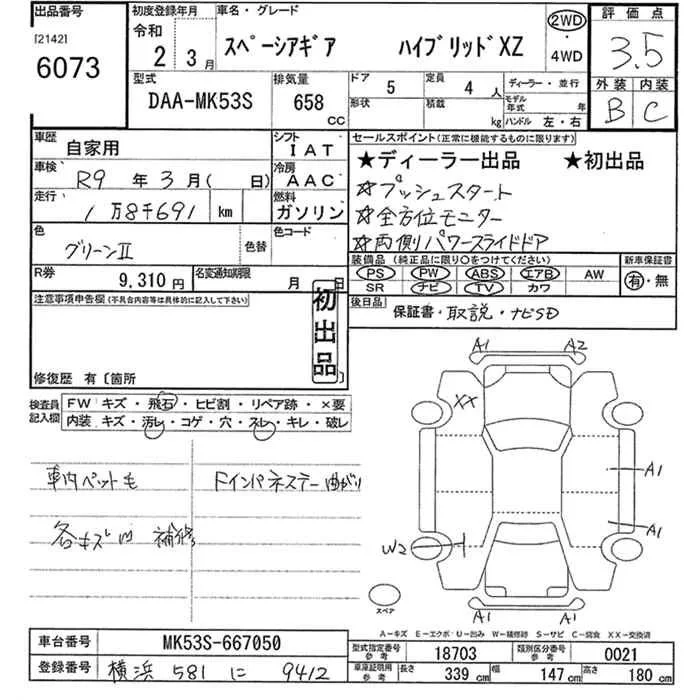 出品番号 初度登録年月 車名・グレード 2WD 評価点
[2142] 令和
6073 2 3月 スペーシアギア ハイブリッドXZ ・4WD 3.5
型式 排気量 ドア 5 定員 4人 ディーラー・並行 外装 内装
DAA-MK53S 658 CC 形状 積載 kg モデル年式 年 B C
ハンドル 左・右
車歴 自家用 シフト IAT セールスポイント(正常に機能するものに限ります)
車検 R9年3月( 日) 冷房 AAC ★ディーラー出品 ★初出品
走行 1万8千691 km 燃料 ガソリン ☆プッシュスタート
☆全方位モニター
色 グリーンⅡ 色替 色コード ☆両側パワースライドドア
装備品(純正品に限り○をつけてください) 新車保証書
R券 9,310円 名変通知期限 月 日 PS PW ABS エアB AW 有・無
SR ナビ TV カワ
注意事項申告欄(不具合内容等は具体的に記入して下さい) 初出品 後日品 保証書・取説・ナビSD
修復歴 有〔箇所 〕
検査員記入欄 FW キズ・飛石・ヒビ割・リペア跡・×要
内装 キズ・汚レ・コゲ・穴・スレ・キレ・破レ
車内ペット毛 Fインパネステー曲がり
各キズ凹 補修
A1 A2
XX
A1
A1
W2
A1 A1
スペア
A-キズ E-エクボ U-凹み W-補修跡 S-サビ C-腐食 XX-交換済
車台番号 MK53S-667050 型式指定番号 参考 18703 類別区分番号 参考 0021
登録番号 横浜 581 に 9412 車庫証明用 参考 長さ 339cm 幅 147cm 高さ 180cm